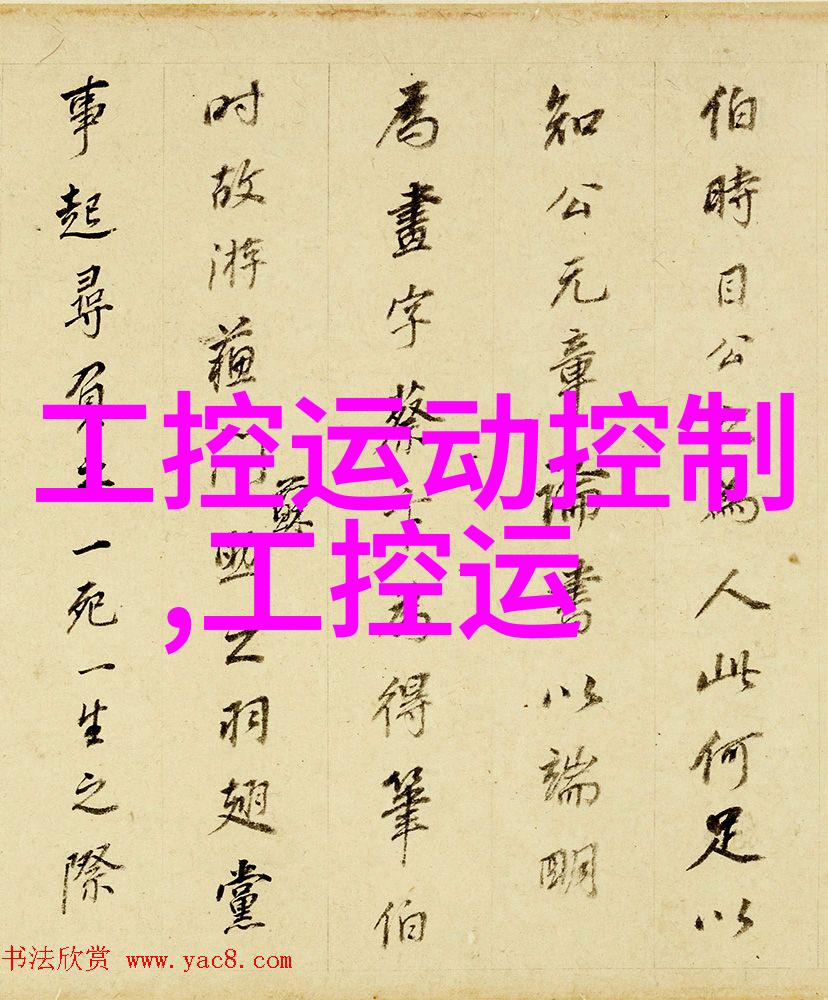 伯時目公為人此何足以
知公元章論書以端明
為畫字蔡得筆伯
时故游蘓門羽翅黨
事起尋負一死一生之際
工控运动控制
,工控运
书法欣赏 www.yac8.com